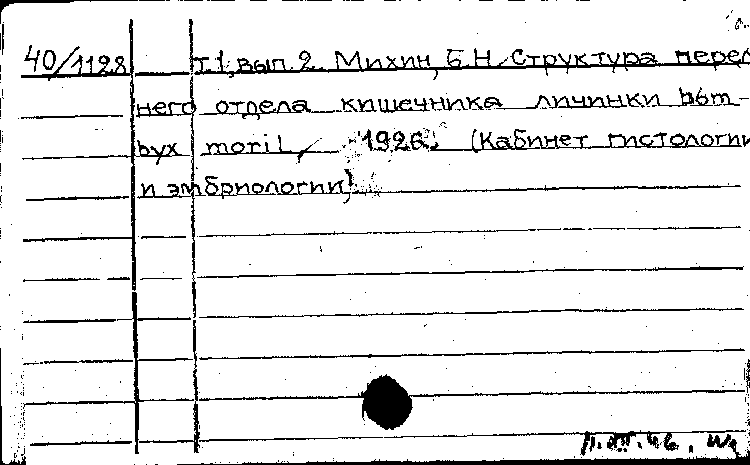 40/1128 Т. 1, вып. 2. Михин, Б.Н. Структура перед
него отдела кишечника личинки bom-
byx mori L, 1926. (Кабинет гистологии
и эмбриологии)